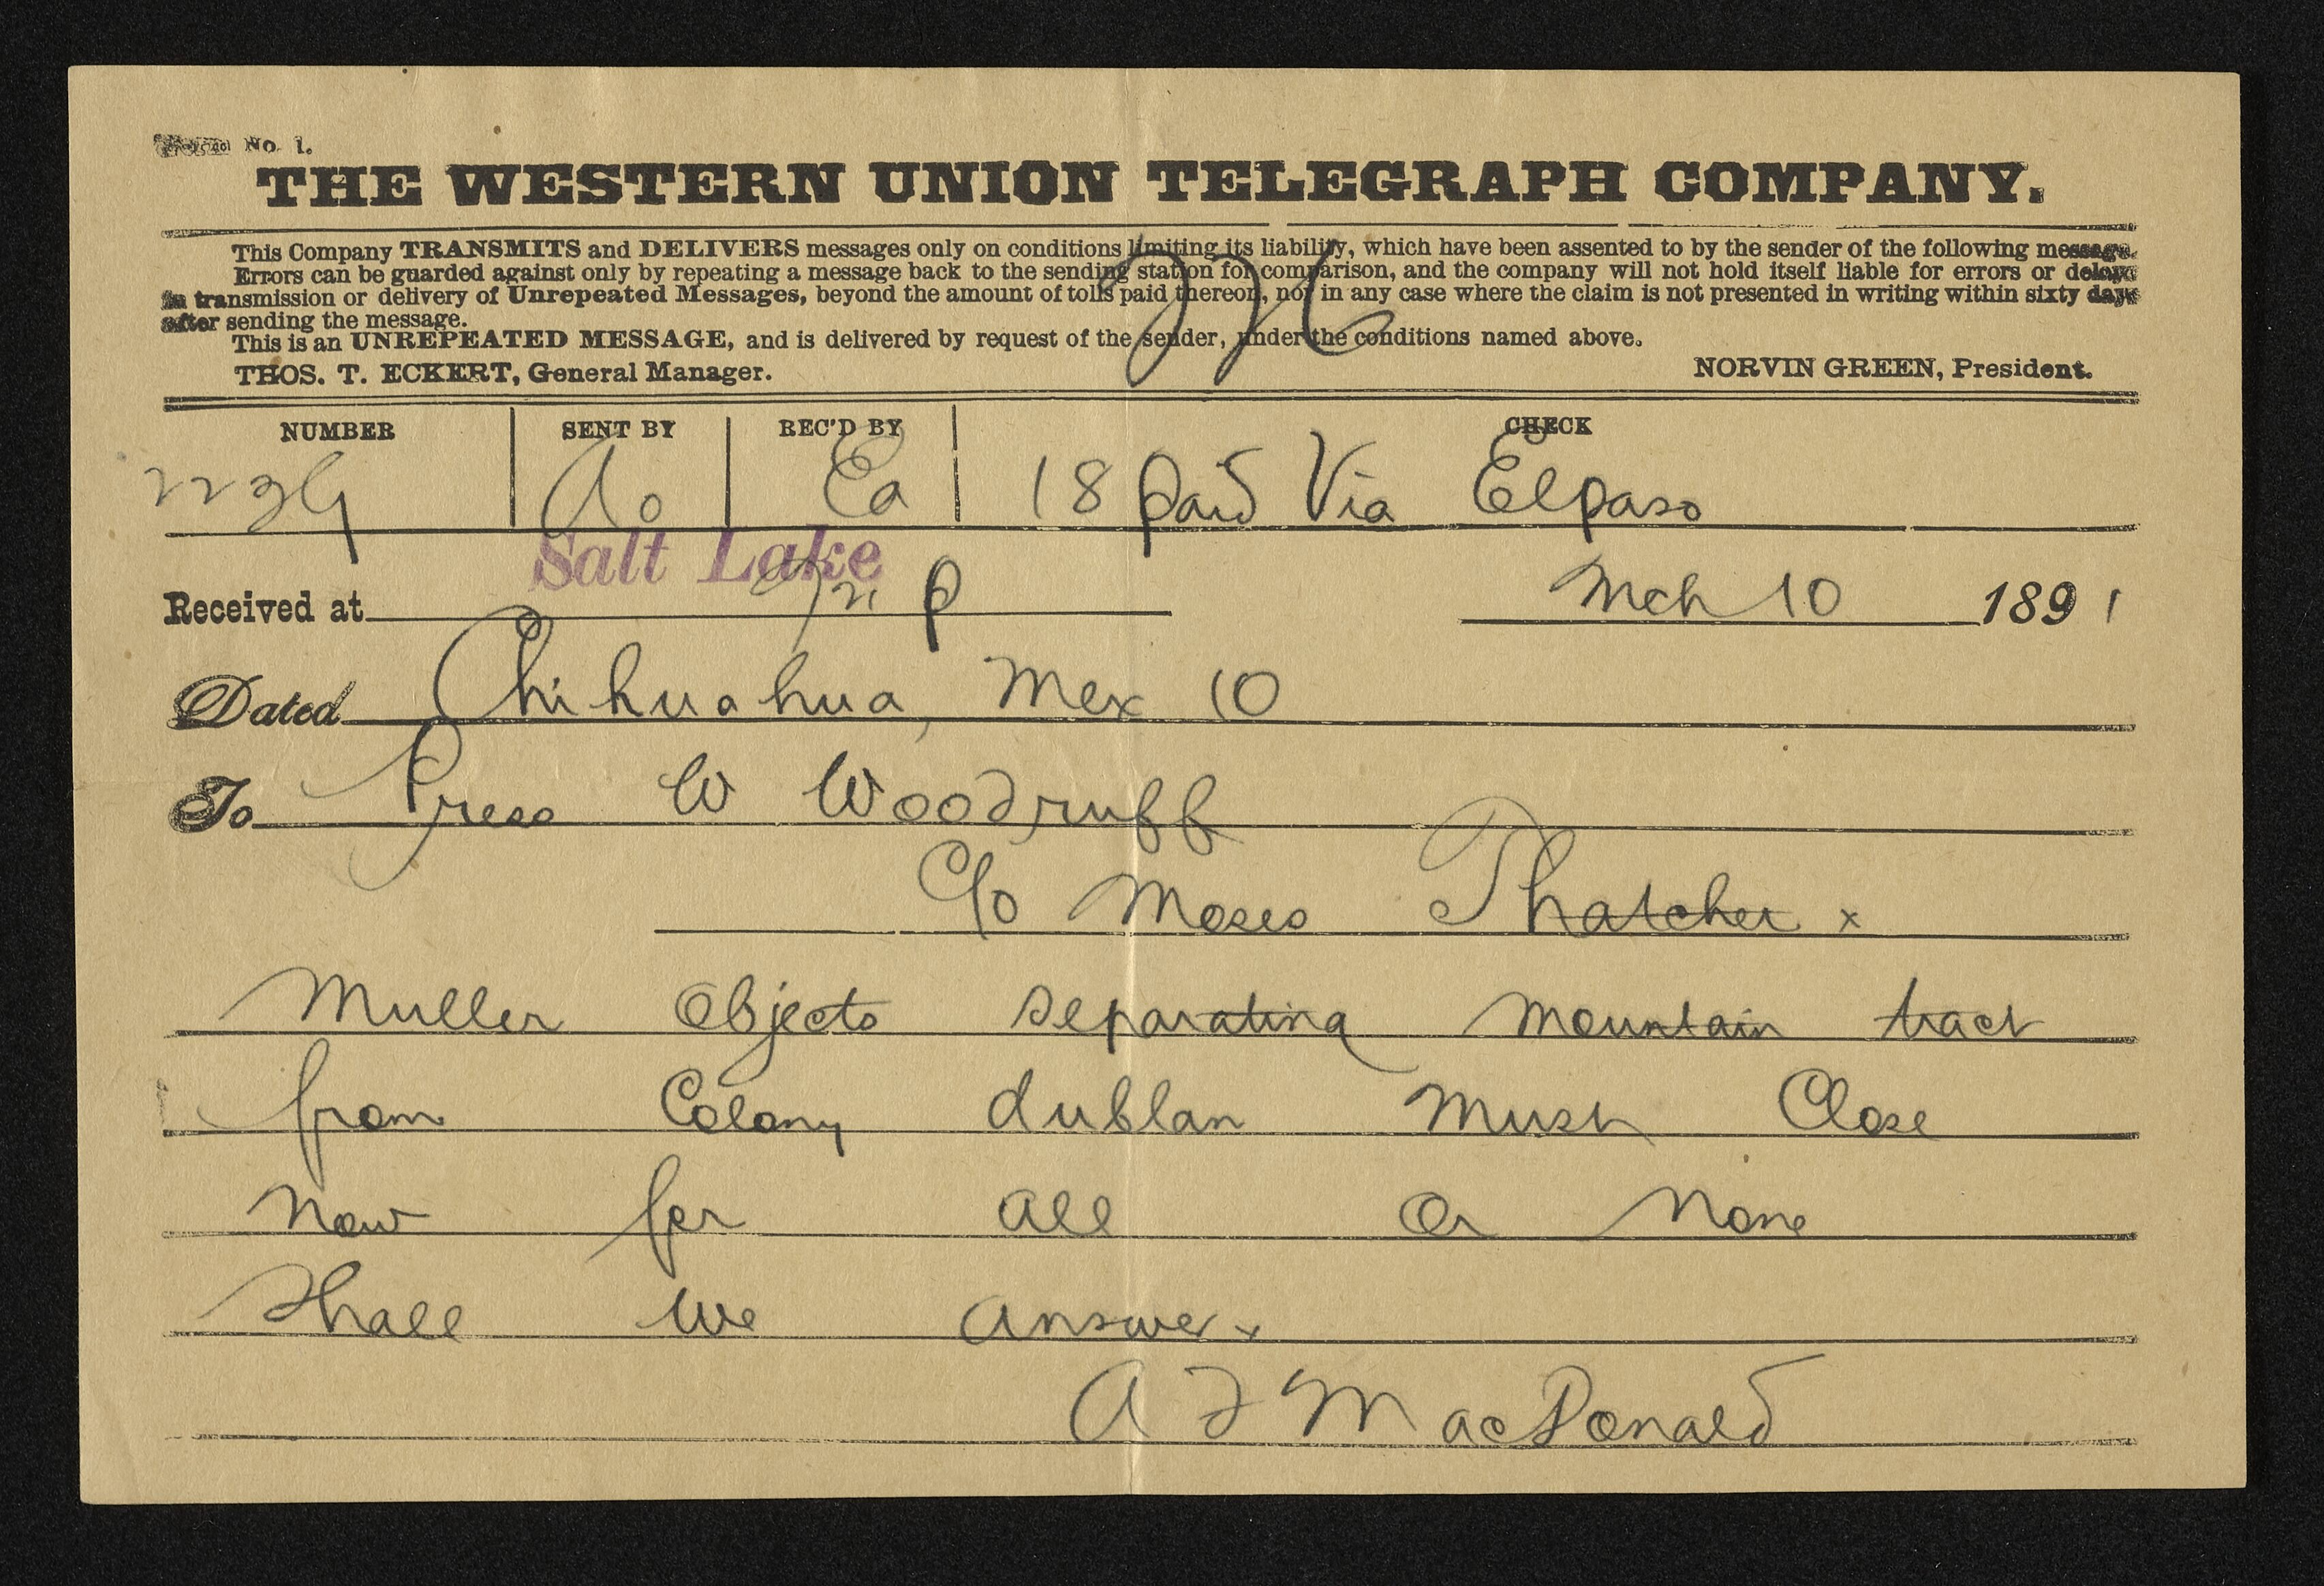 No. 1.
THE WESTERN UNION TELEGRAPH COMPANY.
This Company TRANSMITS and DELIVERS messages only on conditions limiting its liability, which have been assented to by the sender of the following message.
Errors can be guarded against only by repeating a message back to the sending station for comparison, and the company will not hold itself liable for errors or delays
in transmission or delivery of Unrepeated Messages, beyond the amount of tolls paid thereon, nor in any case where the claim is not presented in writing within sixty days
after sending the message.
This is an UNREPEATED MESSAGE, and is delivered by request of the sender, under the conditions named above.
THOS. T. ECKERT, General Manager. NORVIN GREEN, President.
NUMBER SENT BY REC'D BY CHECK
Ao Ea 18 Paid Via Elpaso
Salt Lake
Received at P Mch 10 1891
Dated Chihuahua, Mex 10
To Press W Woodruff
C/o Moses Thatcher x
Muller Objects separating mountain tract
from Colony dublan must Close
now for all or none
Shall we answer x
A F MacDonald